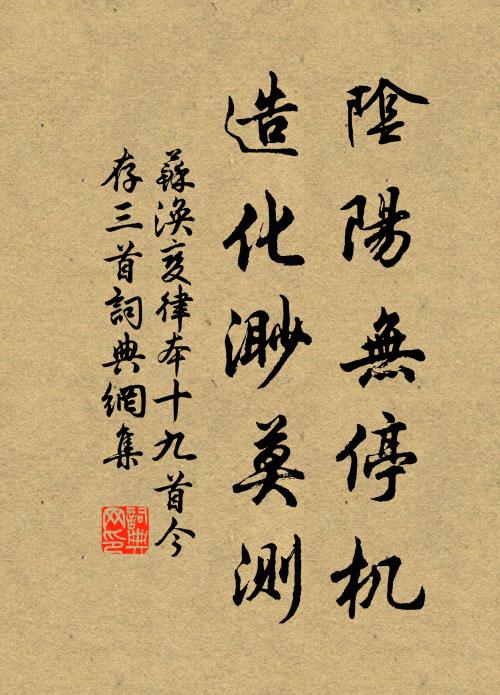 陰陽無停机
造化渺莫測
蘇渙变律本十九首今
存三首詞典網集
詞典
网印